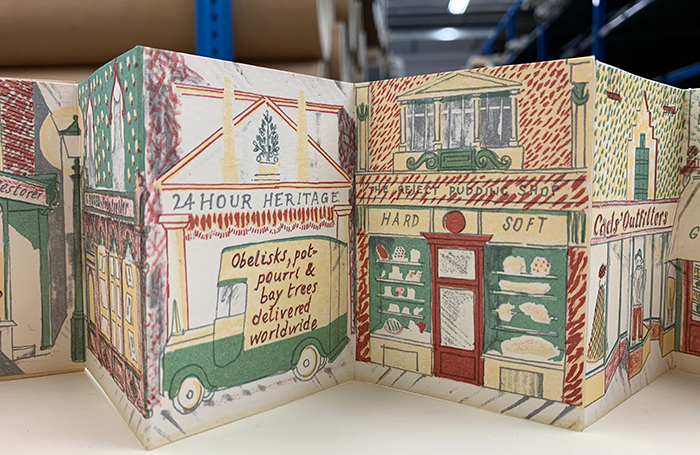 24 HOUR HERITAGE
Obelisks, pot-
pourri &
bay trees
delivered
worldwide
THE REJECT PUDDING SHOP
HARD SOFT
Cads' Outfitters